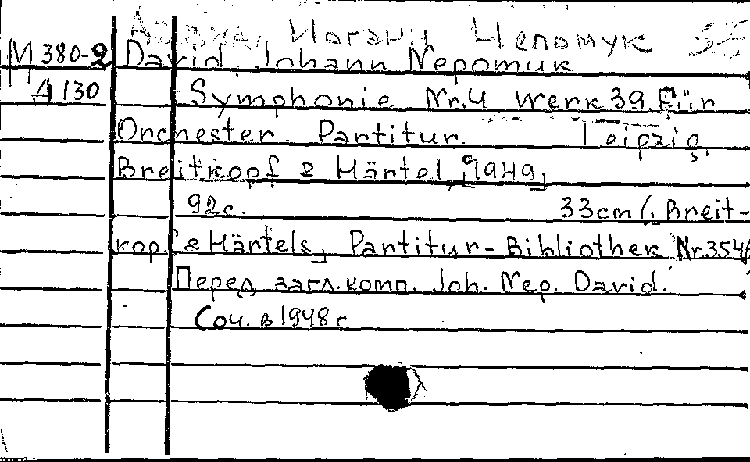 Иоганн Непомук
М 380-2 David, Johann Nepomuk
Д 130 Symphonie Nr.4 Werk 39 Für
Orchester. Partitur. Leipzig,
Breitkopf & Härtel, [1949]
92с. 33cm /. Breit-
kopf & Härtels, Partitur-Bibliothek Nr.3546
Перед загл. комп. Joh. Nep. David.
Соч. в 1948 г